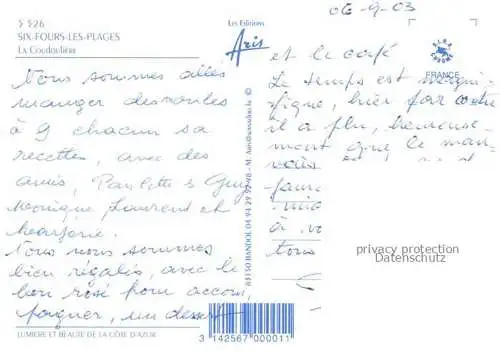 S 526
SIX-FOURS-LES-PLAGES
La Coudoulière
Nous sommes allés
manger des moules
à 9 chacun sa
recettes, avec des
amis, Paulette & Guy,
Monique, Laurent et
Marjorie.
Nous nous sommes
bien régalés, avec le
bon rosé pour accom
pagner, un dessert
LUMIERE ET BEAUTE DE LA CÔTE D'AZUR
Les Editions
Aris
83150 BANDOL 04 94 29 92 98
3 142567 000011
06-9-03
FRANCE
et le café
Le temps est magni
fique, hier par contre
il a plu, heureuse
ment que le mau
vais
à
tous
privacy protection
Datenschutz